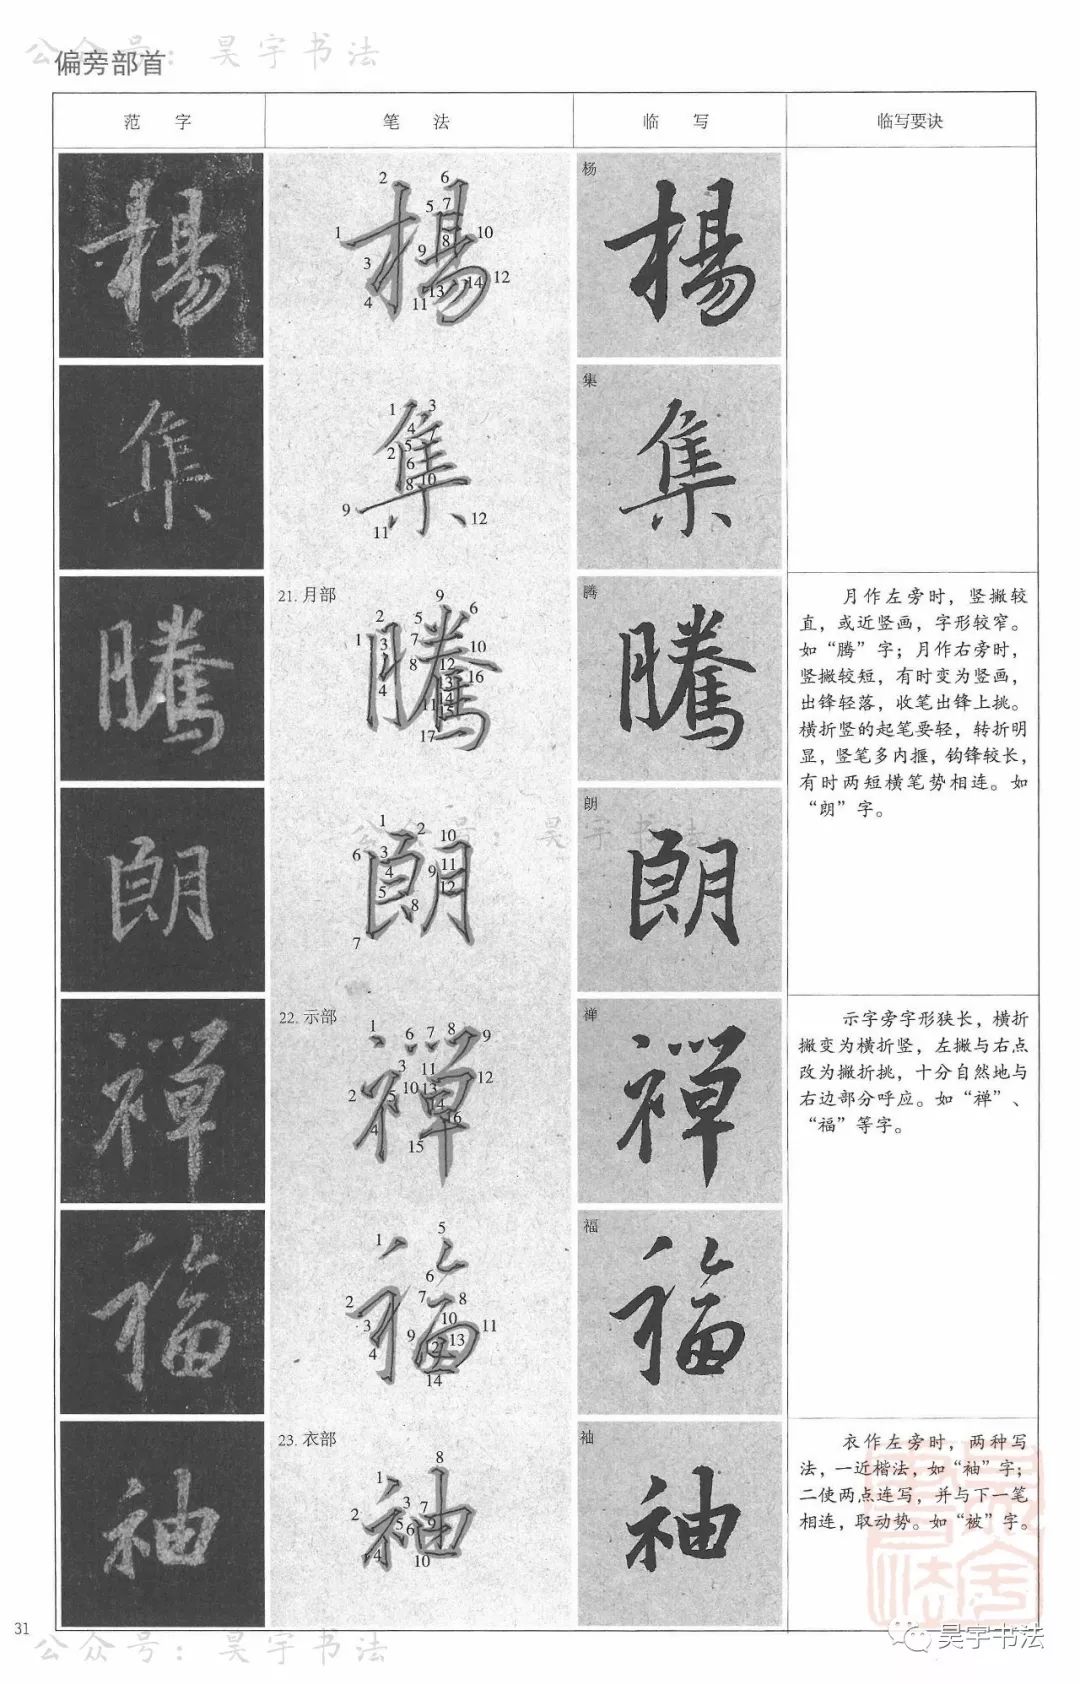 公众号：昊宇书法
偏旁部首
范 字
笔 法
临 写
临写要诀
楊
杨
集
集
21. 月部
騰
腾
月作左旁时，竖撇较
直，或近竖画，字形较窄。
如“腾”字；月作右旁时，
竖撇较短，有时变为竖画，
出锋轻落，收笔出锋上挑。
横折竖的起笔要轻，转折明
显，竖笔多内擫，钩锋较长，
有时两短横笔势相连。如
“朗”字。
朗
朗
公众号：昊宇书法
22. 示部
禪
禅
示字旁字形狭长，横折
撇变为横折竖，左撇与右点
改为撇折挑，十分自然地与
右边部分呼应。如“禅”、
“福”等字。
福
福
23. 衣部
袖
袖
衣作左旁时，两种写
法，一近楷法，如“袖”字；
二使两点连写，并与下一笔
相连，取动势。如“被”字。
31
公众号：昊宇书法
昊宇书法